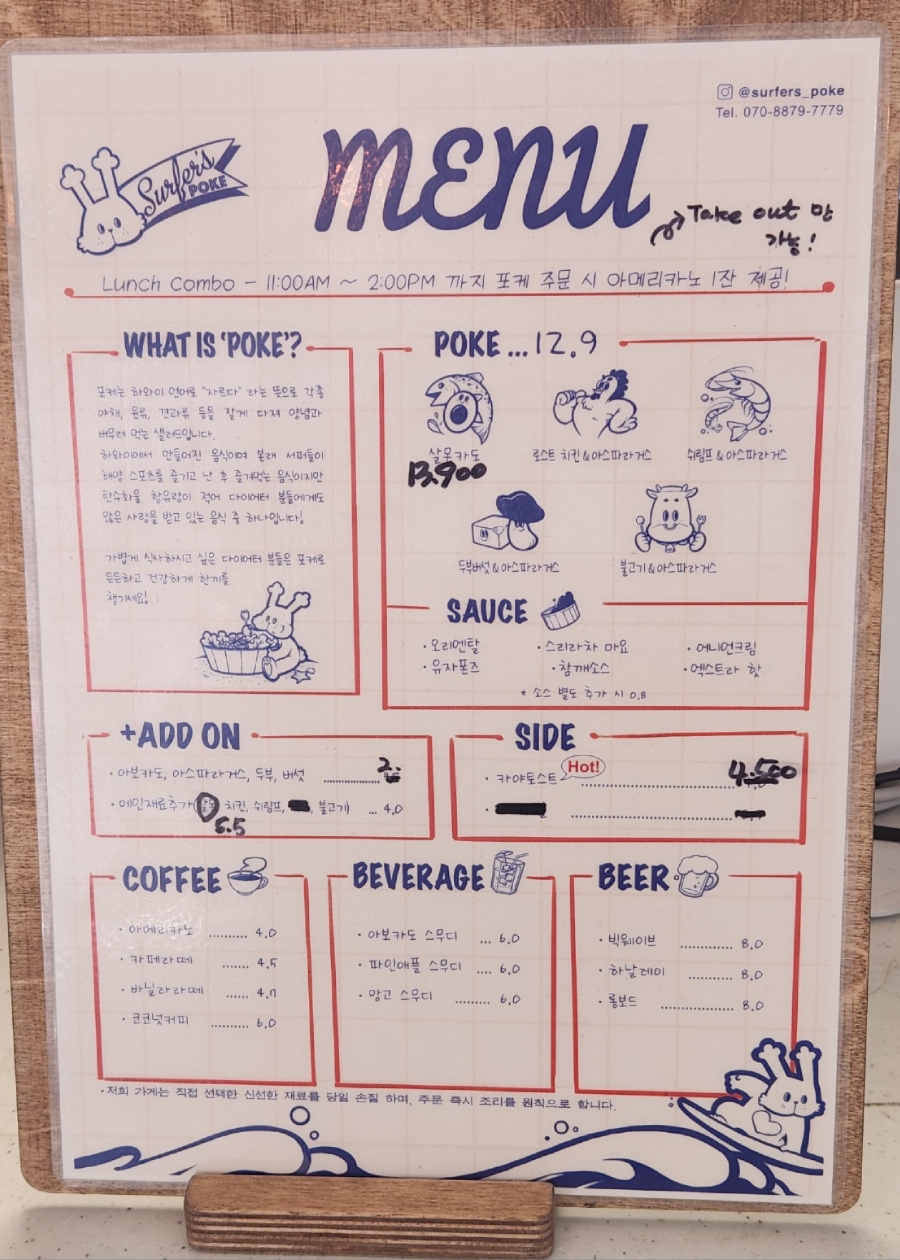 @surfers_poke
Tel. 070-8879-7779
Surfer's
POKE
MENU
Take out 만
가능!
Lunch Combo - 11:00AM ~ 2:00PM 까지 포케 주문 시 아메리카노 1잔 제공!
WHAT IS 'POKE'?
포케는 하와이 언어로 "자르다" 라는 뜻으로 각종
야채, 육류, 견과류 등을 잘게 다져 양념과
버무려 먹는 샐러드입니다.
하와이에서 만들어진 음식이며 본래 서퍼들이
해양 스포츠를 즐기고 난 후 즐겨먹는 음식이지만
탄수화물 함유량이 적어 다이어터 분들에게도
많은 사랑을 받고 있는 음식 중 하나입니다!
가볍게 식사하시고 싶은 다이어터 분들은 포케로
든든하고 건강하게 한끼를
챙기세요!
POKE ... 12.9
살몬카도
13,900
로스트 치킨&아스파라거스
쉬림프&아스파라거스
두부버섯&아스파라거스
불고기&아스파라거스
SAUCE
· 오리엔탈
· 스리라차 마요
· 어니언크림
· 유자폰즈
· 참깨소스
· 엑스트라 핫
* 소스 별도 추가 시 0.8
+ADD ON
· 아보카도, 아스파라거스, 두부, 버섯 ............
· 메인재료추가( 치킨, 쉬림프, , 불고기) ... 4.0
5.5
SIDE
· 카야토스트 Hot! ............ 4.500
COFFEE
· 아메리카노 ......... 4.0
· 카페라떼 ...... 4.5
· 바닐라라떼 ..... 4.7
· 코코넛커피 ......... 6.0
BEVERAGE
· 아보카도 스무디 ... 6.0
· 파인애플 스무디 .... 6.0
· 망고 스무디 ......... 6.0
BEER
· 빅웨이브 ............ 8.0
· 하날레이 ........... 8.0
· 롱보드 .............. 8.0
· 저희 가게는 직접 선택한 신선한 재료를 당일 손질 하며, 주문 즉시 조리를 원칙으로 합니다.